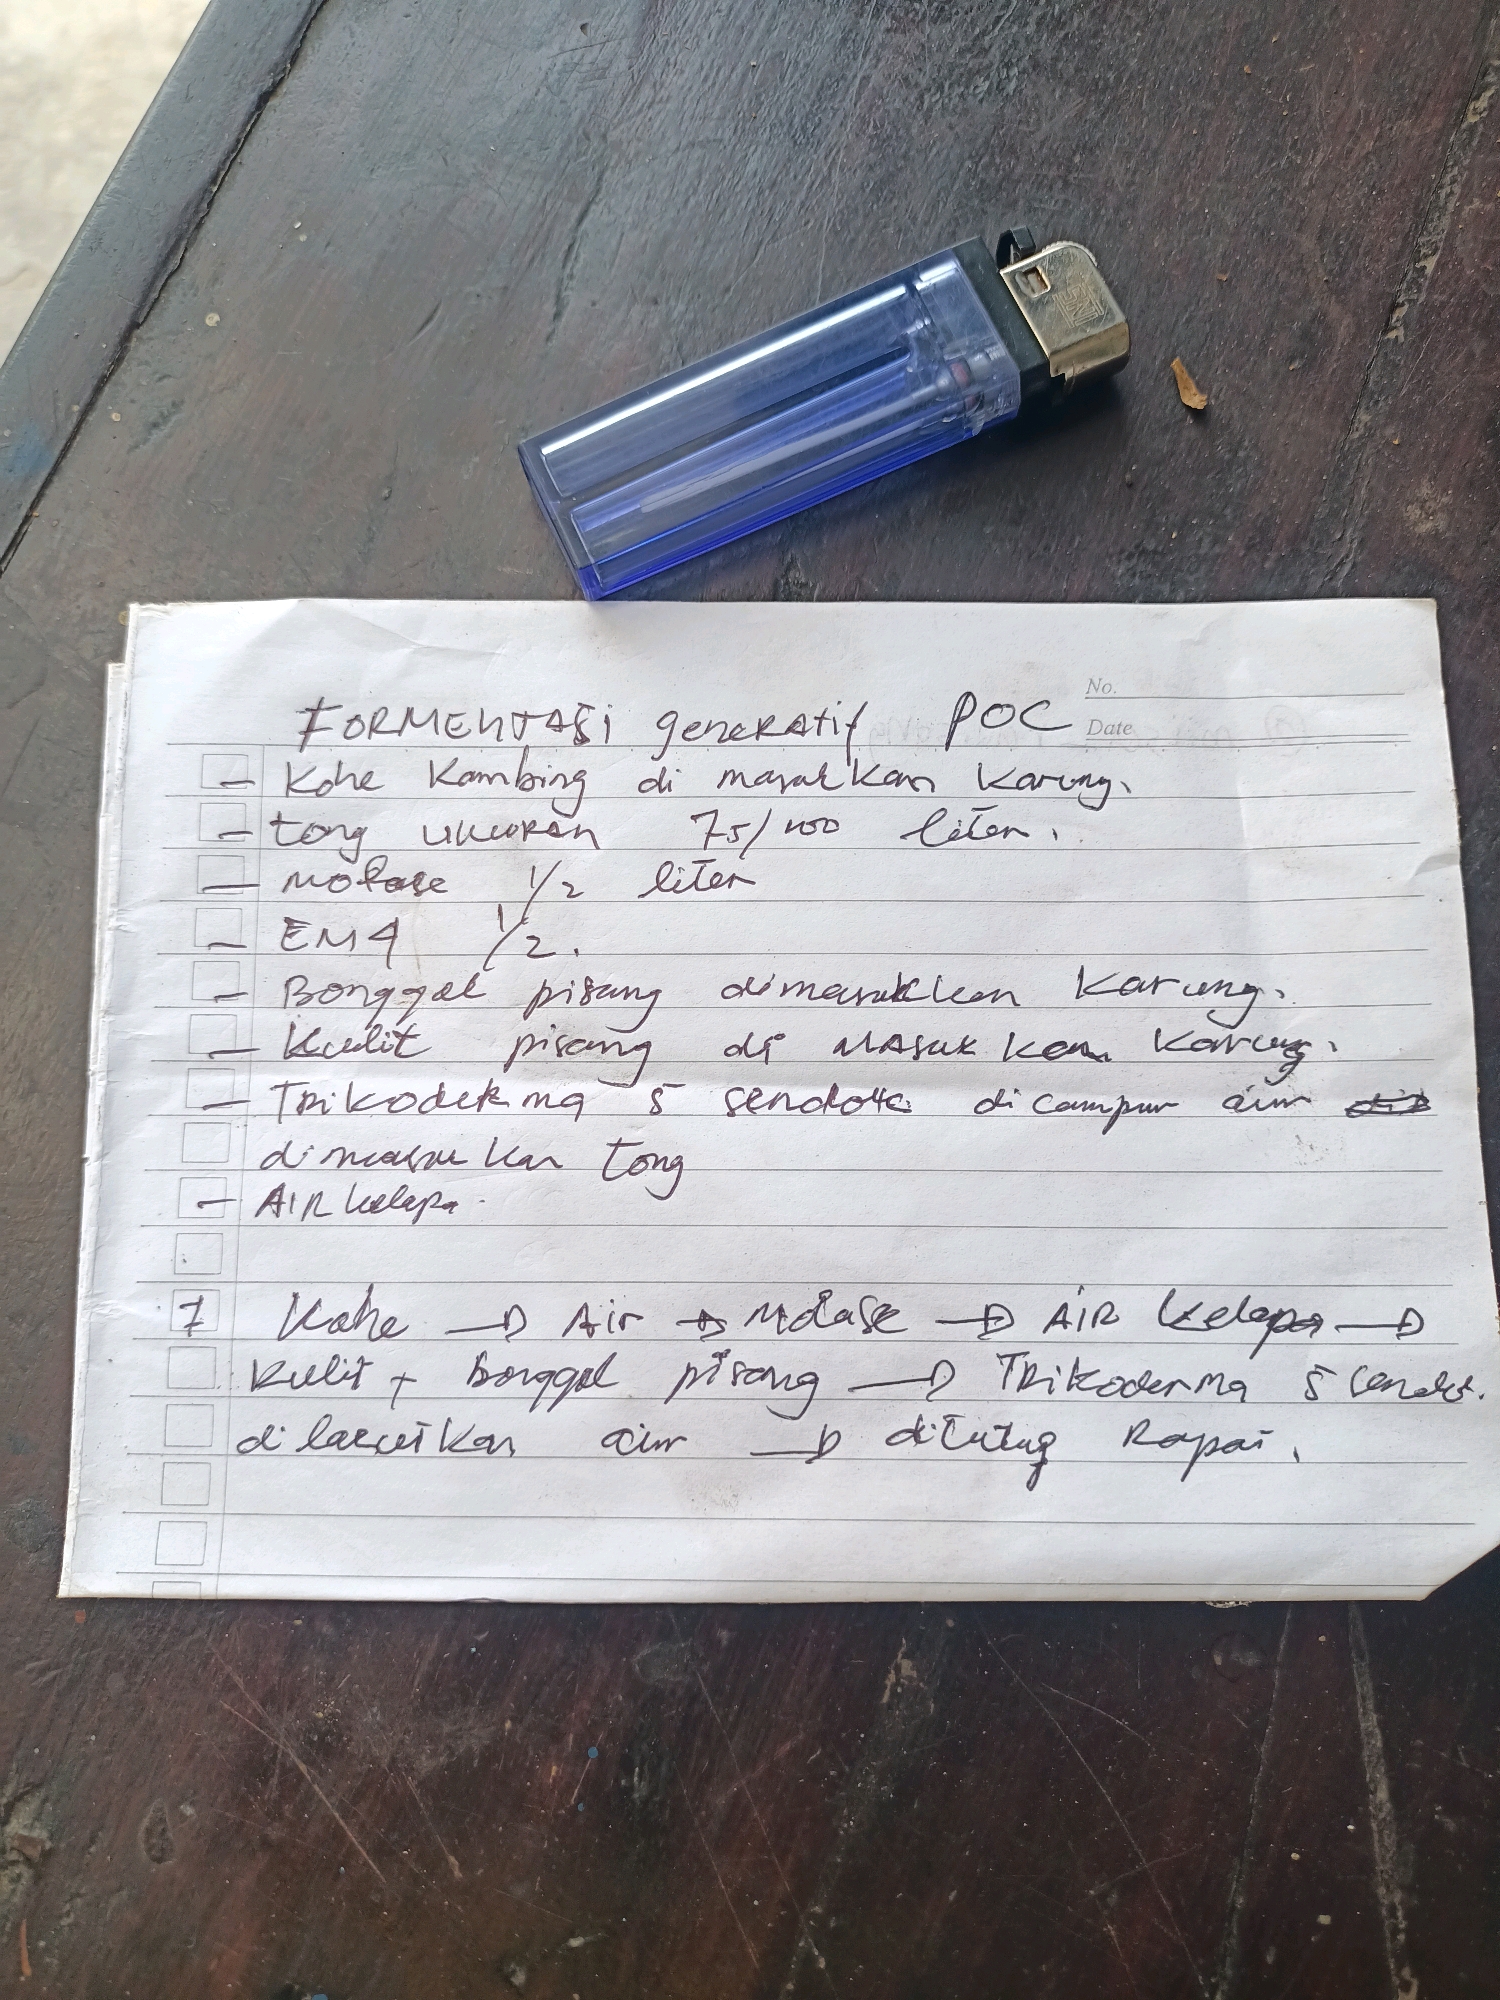 FORMENTASi generatif POC
No.
Date
- Kohe Kambing di masukkan Karung.
- tong UKURAN 75/100 liter.
- Molase 1/2 liter
- EM4 1/2.
- Bonggol pisang dimasukkan Karung.
- Kulit pisang di MASUKkan Karung.
- Trikoderma 5 sendok dicampur air
dimasukkan tong
- AIR kelapa.
7 Kohe → Air → Molase → AIR kelapa →
Kulit + Bonggol pisang → Trikoderma 5 sendok.
dilarutkan air → ditutup Rapat.